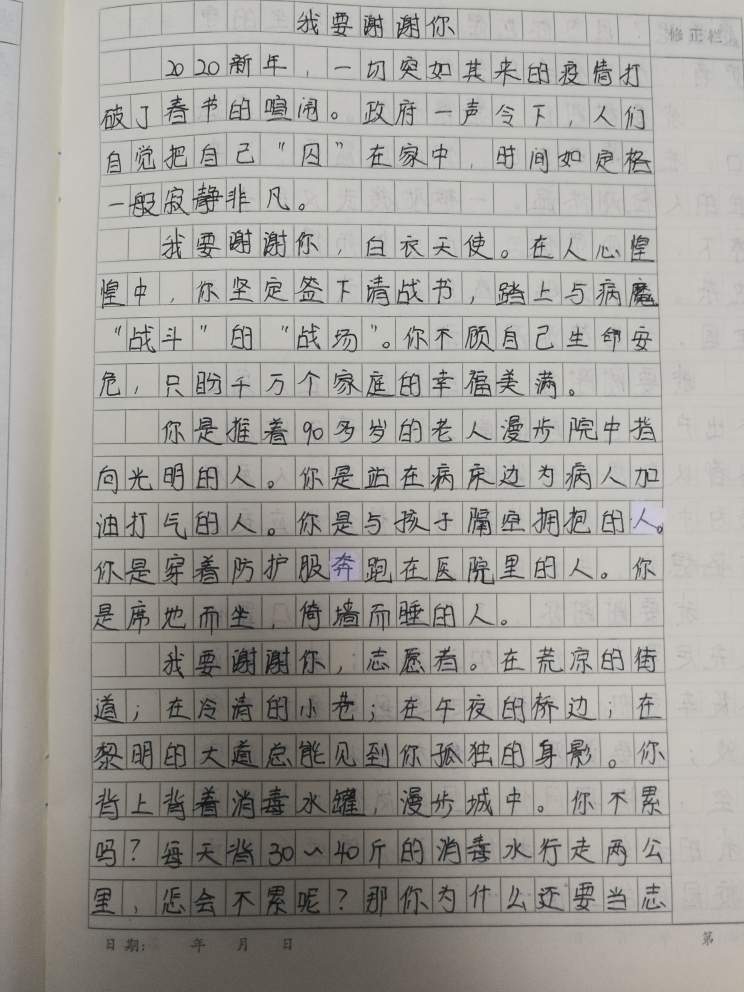 我要谢谢你
修正栏
2020新年，一切突如其来的疫情打
破了春节的喧闹。政府一声令下，人们
自觉把自己“囚”在家中，时间如定格
一般寂静非凡。
我要谢谢你，白衣天使。在人心惶
惶中，你坚定签下请战书，踏上与病魔
“战斗”的“战场”。你不顾自己生命安
危，只盼千万个家庭的幸福美满。
你是推着90多岁的老人漫步院中指
向光明的人。你是站在病床边为病人加
油打气的人。你是与孩子隔空拥抱的人。
你是穿着防护服奔跑在医院里的人。你
是席地而坐，倚墙而睡的人。
我要谢谢你，志愿者。在荒凉的街
道；在冷清的小巷；在午夜的桥边；在
黎明的大道总能见到你孤独的身影。你
背上背着消毒水罐，漫步城中。你不累
吗？每天背30~40斤的消毒水行走两公
里，怎会不累呢？那你为什么还要当志
日期： 年 月 日
第